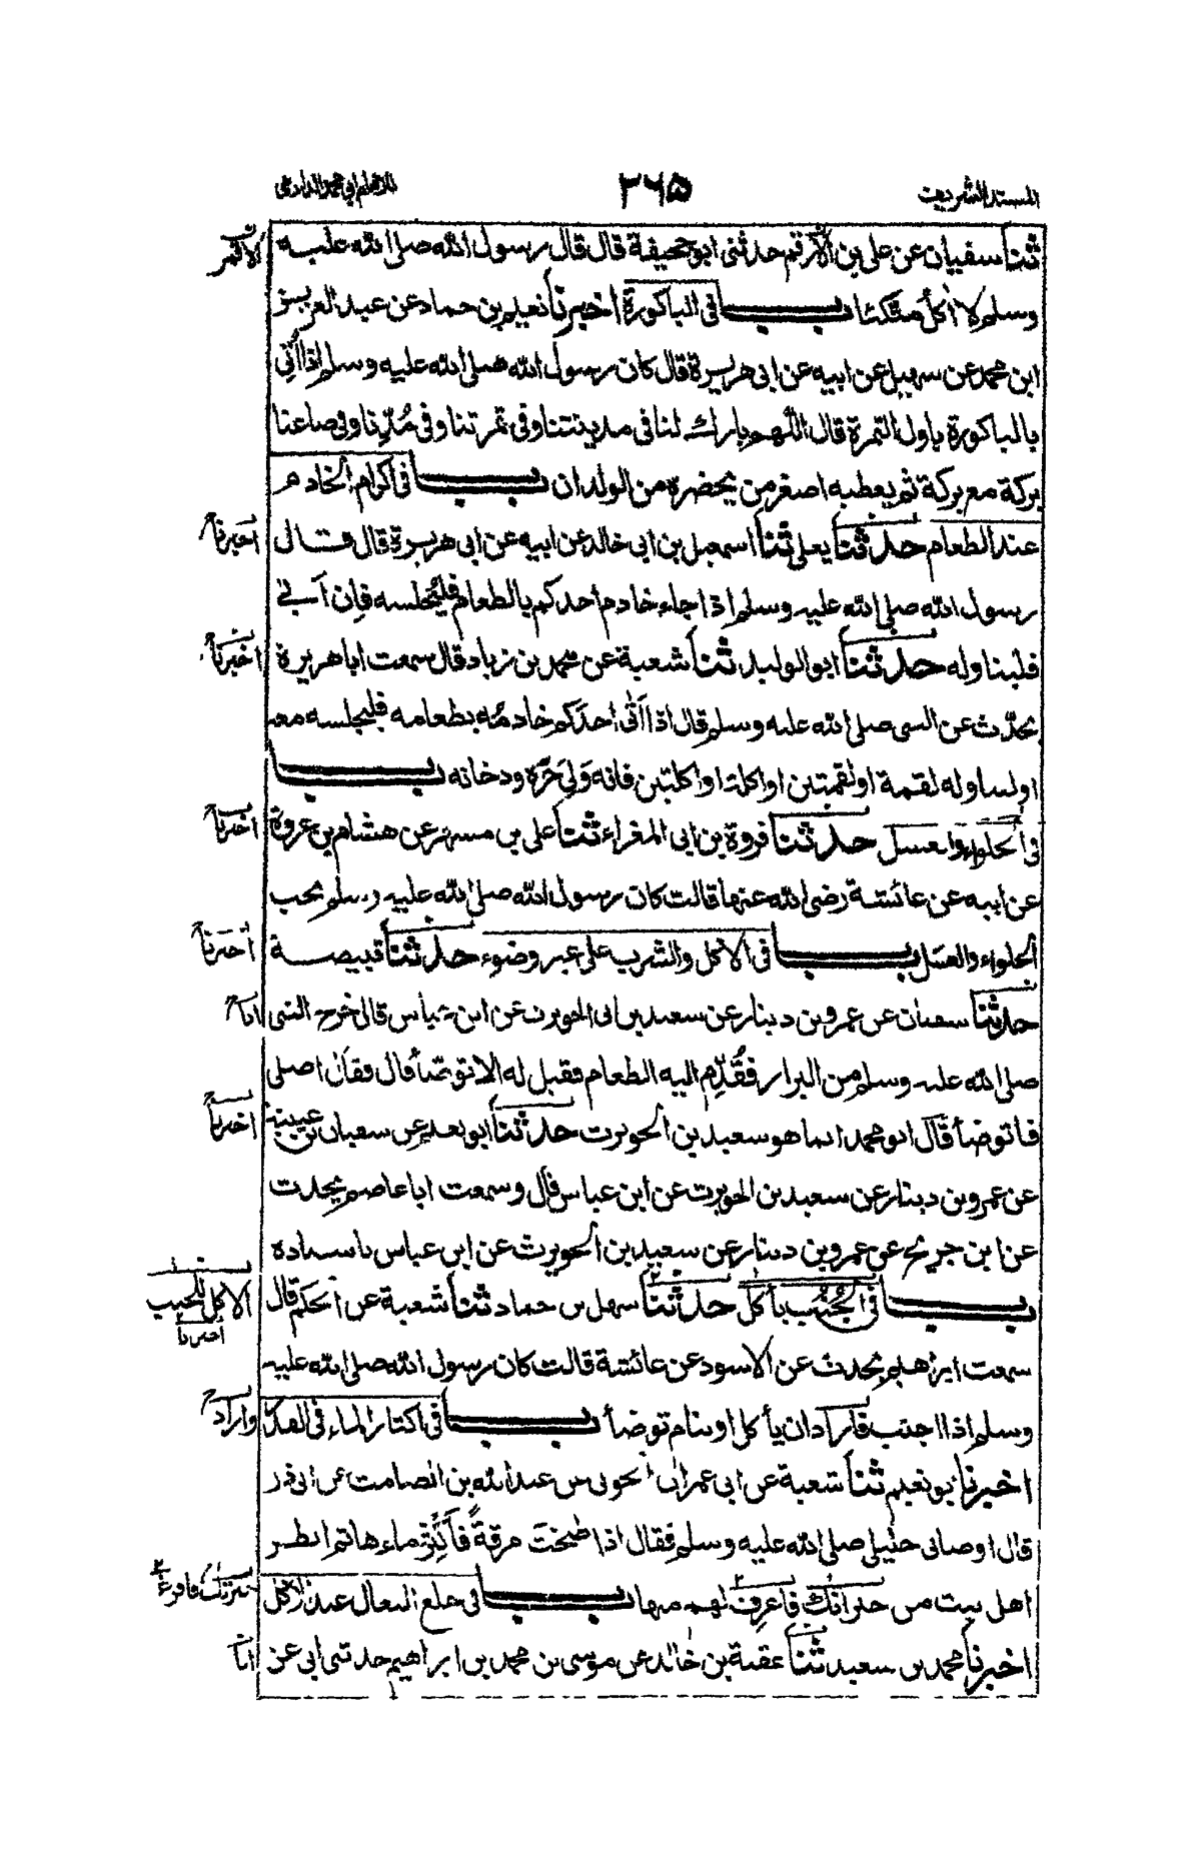 المسند الشريف
٣٦٥
للامام ابي محمد الدارمي
ثنا سفيان عن علي بن الأرقم حدثني ابو جحيفة قال قال رسول الله صلى الله عليه
الاقمر
وسلم لا اٰكل متكئا بــــاب في الباكورة اخبرنا نعيم بن حماد عن عبد العزيز
ابن محمد عن سهيل عن ابيه عن ابي هريرة قال كان رسول الله صلى الله عليه وسلم اذا اُتي
بالباكورة باول الثمرة قال اللّٰهم بارك لنا في مدينتنا وفي ثمرتنا وفي مُدِّنا وفي صاعنا
بركة مع بركة ثم يعطيه اصغر من يحضره من الولدان بــــاب في اكرام الخادم
عند الطعام حدثنا يعلى ثنا اسمعيل بن ابي خالد عن ابيه عن ابي هريرة قال قال
اخبرنا
رسول الله صلى الله عليه وسلم اذا جاء خادم احدكم بالطعام فليجلسه فان اَبى
فليناوله حدثنا ابو الوليد ثنا شعبة عن محمد بن زياد قال سمعت ابا هريرة
اخبرنا
يحدّث عن النبي صلى الله عليه وسلم قال اذا اَتٰى احدَكم خادمُه بطعامه فليجلسه معه
او ليناوله لقمة او لقمتين او اكلة او اكلتين فانه وَلِيَ حَرّه ودخانه بــــاب
في الحلواء والعسل حدثنا فروة بن ابي المغراء ثنا علي بن مسهر عن هشام بن عروة
اخبرنا
عن ابيه عن عائشة رضي الله عنها قالت كان رسول الله صلى الله عليه وسلم يحب
الحلواء والعسل بــــاب في الاكل والشرب على غير وضوء حدثنا قبيصة
اخبرنا
حدثنا سفيان عن عمرو بن دينار عن سعيد بن ابي الحويرث عن ابن عباس قال خرج النبي
انا
صلى الله عليه وسلم من البراز فقُدِّم اليه الطعام فقيل له الا توضأ قال فقال اصلي
فاتوضأ قال ابو محمد انما هو سعيد بن الحويرث حدثنا ابو نعيم عن سفيان بن عيينة
اخبرنا
عن عمرو بن دينار عن سعيد بن الحويرث عن ابن عباس قال وسمعت ابا عاصم يحدث
عن ابن جريج عن عمرو بن دينار عن سعيد بن الحويرث عن ابن عباس باسناده
بــــاب في الجُنُب يأكل حدثنا سهل بن حماد ثنا شعبة عن الحكم قال
الاكل للجنب
اخبرنا
سمعت ابراهيم يحدث عن الاسود عن عائشة قالت كان رسول الله صلى الله عليه
وسلم اذا اجنب فاراد ان يأكل او ينام توضأ بــــاب في اكثار الماء في القدر
واراد
اخبرنا ابو نعيم ثنا شعبة عن ابي عمران الجوني عن عبد الله بن الصامت عن ابي ذر
قال اوصاني خليلي صلى الله عليه وسلم فقال اذا طبختَ مرقةً فاَكْثِر ماءها ثم انظر
اهل بيت من جيرانك فاغرف لهم منها بــــاب في خلع النعال عند الاكل
اخبرنا محمد بن سعيد ثنا عقبة بن خالد عن موسى بن محمد بن ابراهيم حدثني ابي عن
انا